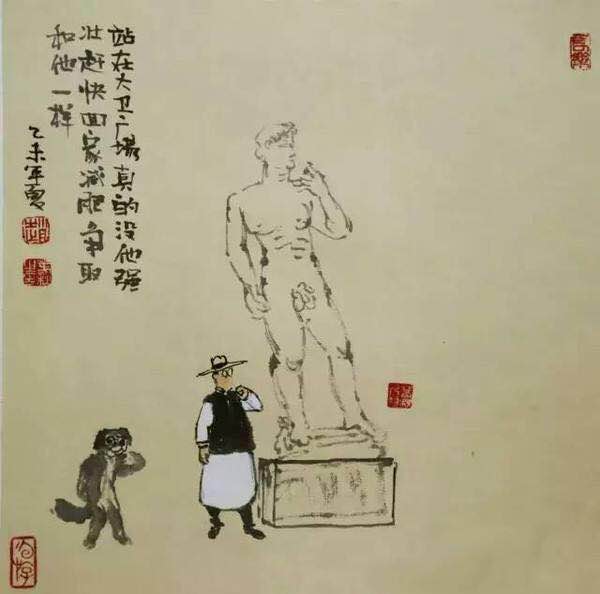 站在大卫广場真的没他强
壮赶快回家减肥争取
和他一样
乙未年夏